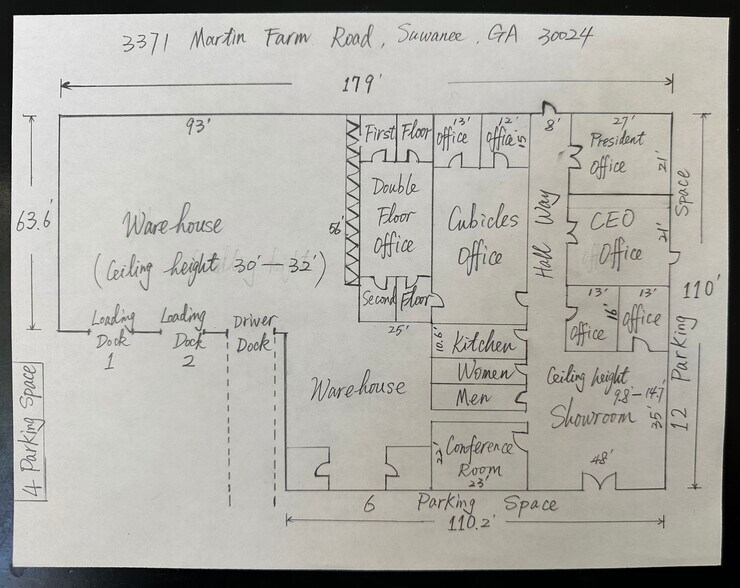 3371 Martin Farm Road, Suwanee, GA 30024
179'
93'
First Floor
13'
Office
12'
Office
15'
8'
27'
President
Office
21'
Space
63.6'
Warehouse
(Ceiling height 30'-32')
56'
Double
Floor
Office
Cubicles
Office
Hall Way
CEO
Office
21'
110'
Second Floor
25'
13'
13'
Office
16'
Office
Loading
Dock
1
Loading
Dock
2
Driver
Dock
10.6'
Kitchen
Women
Men
Warehouse
Ceiling height
9.8'-14.7'
Showroom
35'
12 Parking
4 Parking Space
Conference
Room
22'
23'
48'
6 Parking Space
110.2'